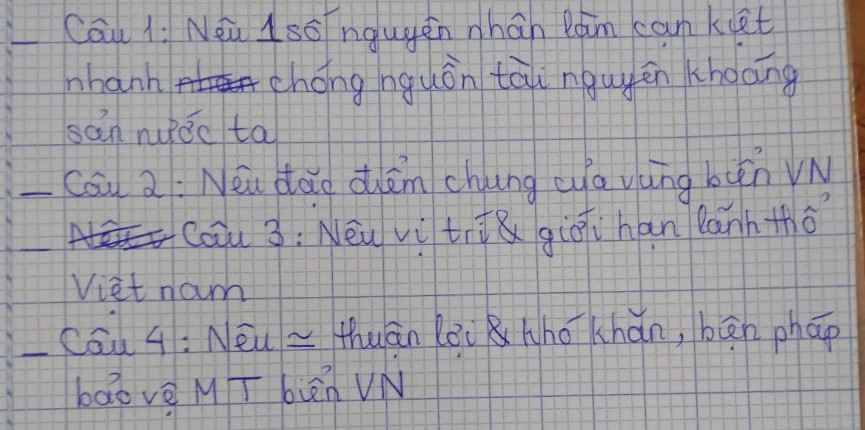 - Câu 1: Nêu 1 số nguyên nhân làm cạn kiệt
nhanh chóng nguồn tài nguyên khoáng
sản nước ta
- Câu 2: Nêu đặc điểm chung của vùng biển VN
- Câu 3: Nêu vị trí & giới hạn lãnh thổ
Việt nam
- Câu 4: Nêu ≃ thuận lợi & khó khăn, biện pháp
bảo vệ MT biển VN